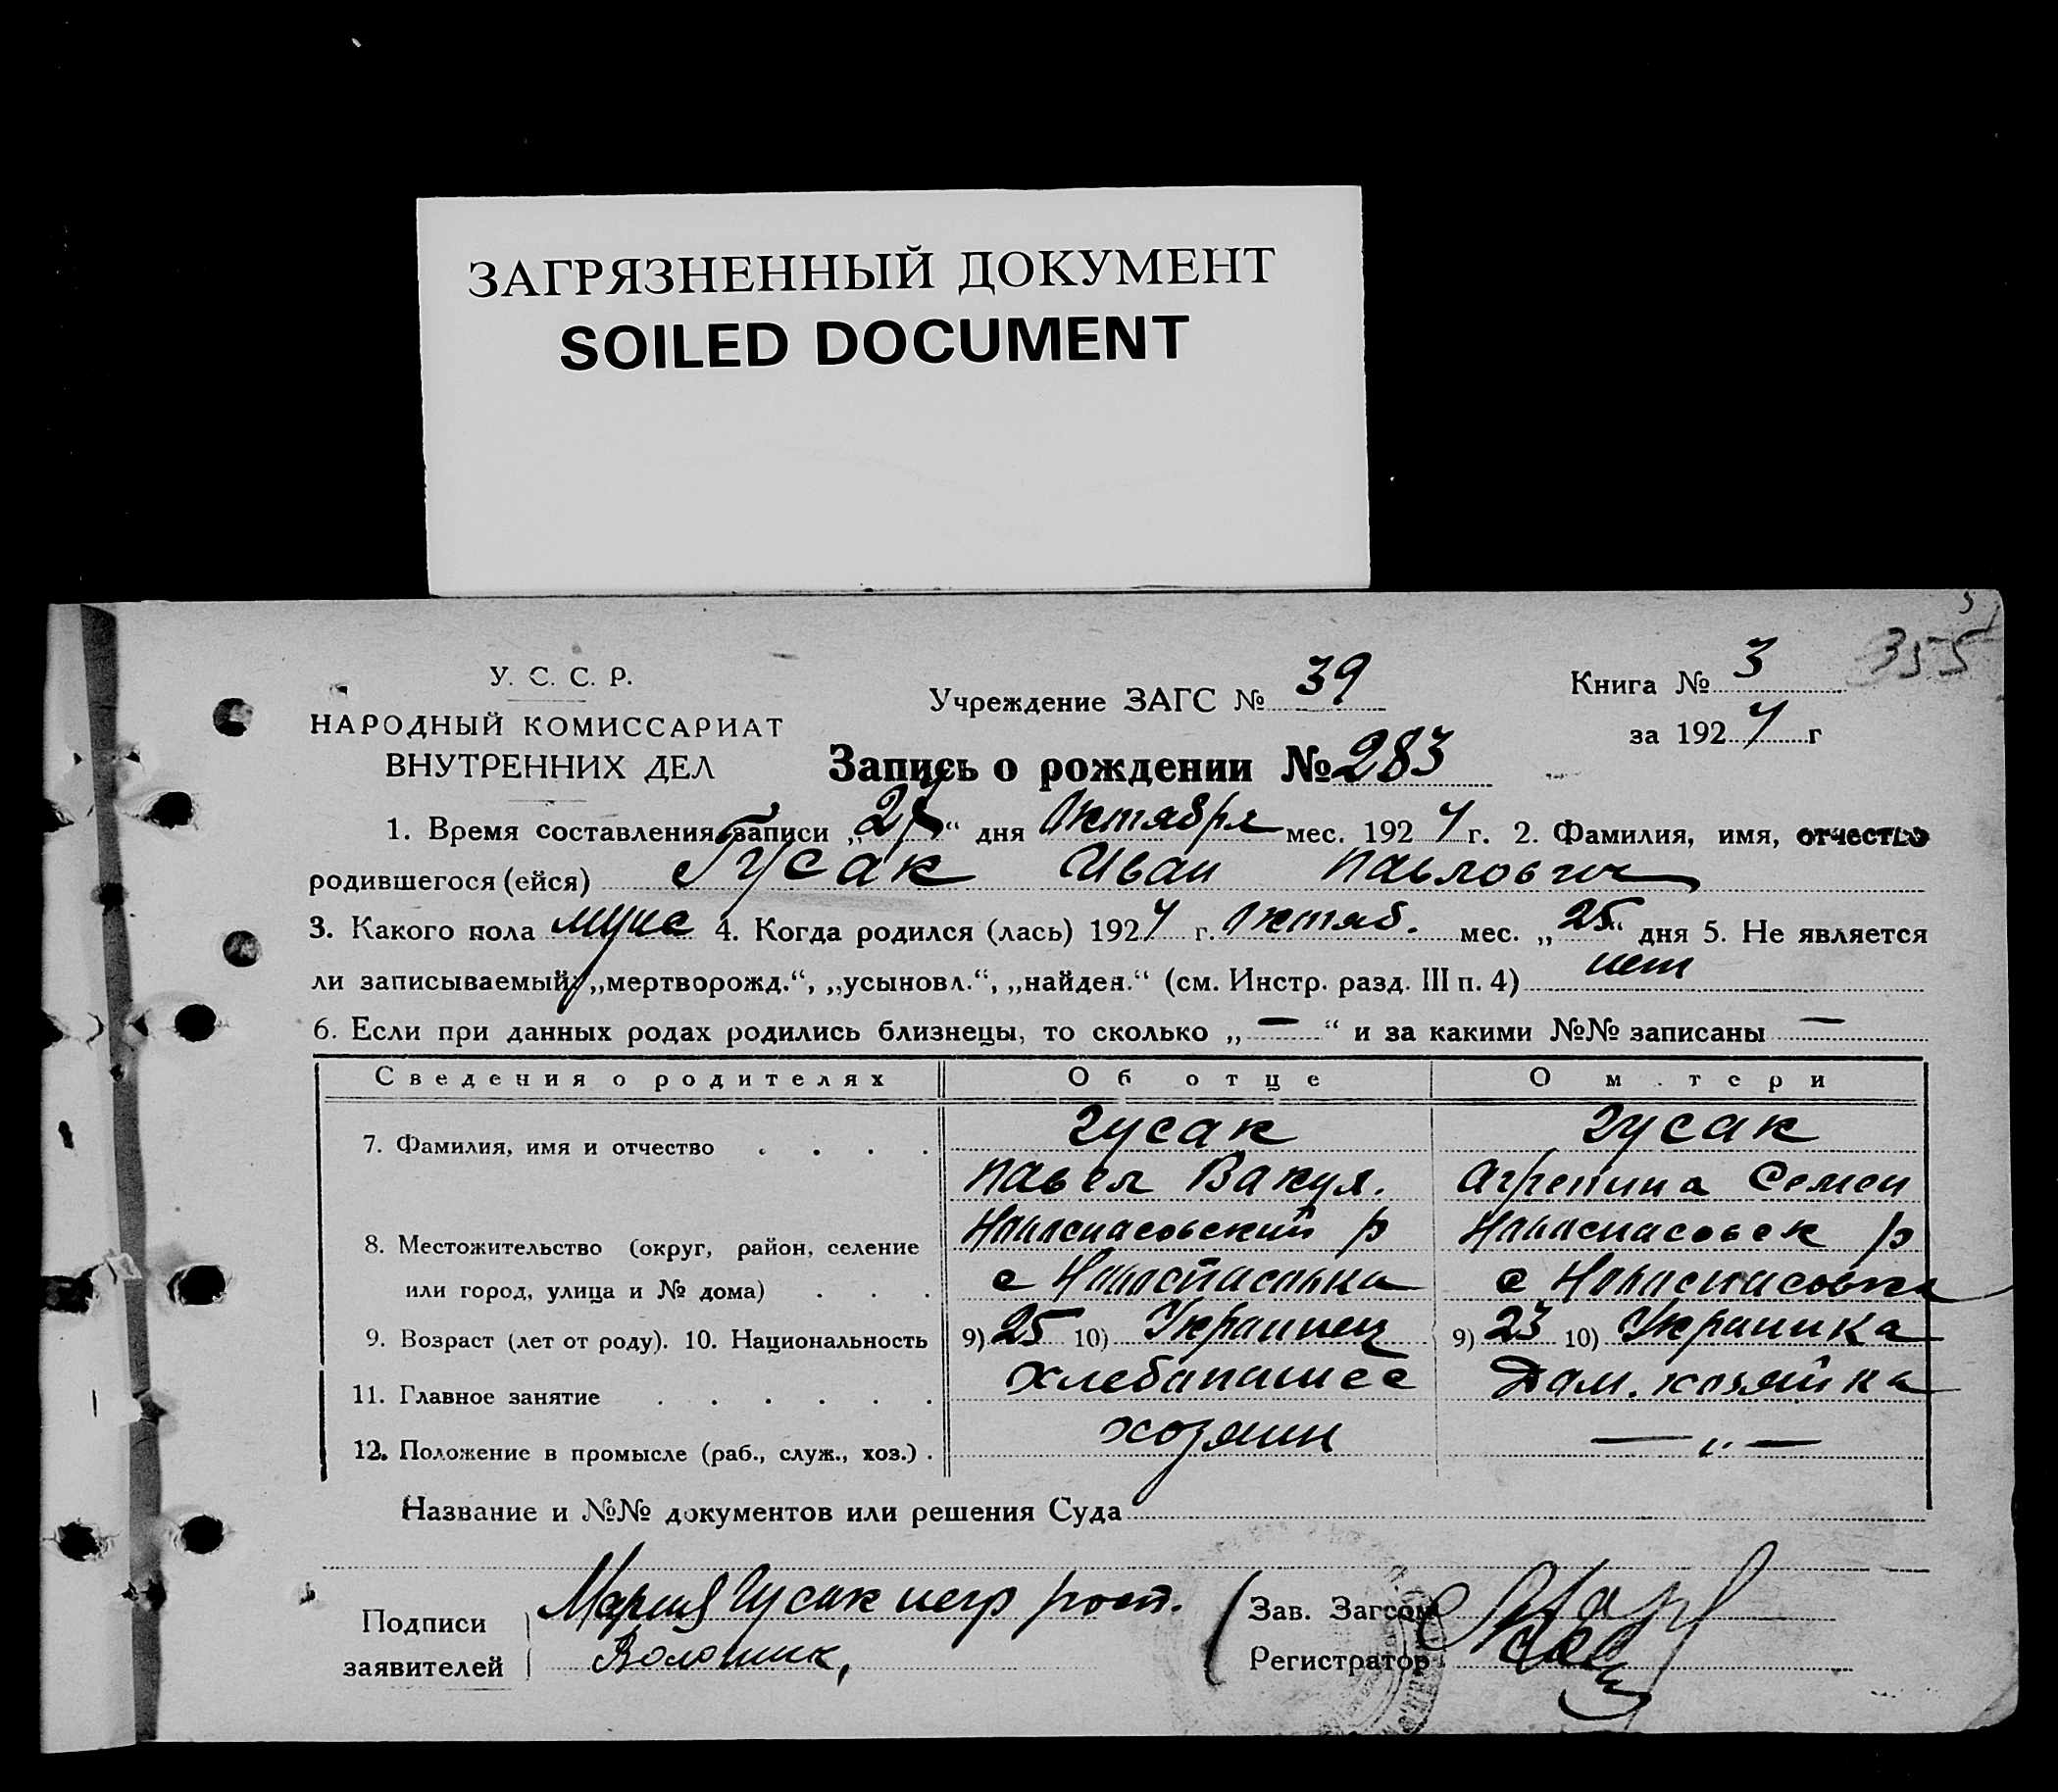 ЗАГРЯЗНЕННЫЙ ДОКУМЕНТ
SOILED DOCUMENT
355
У. С. С. Р.
НАРОДНЫЙ КОМИССАРИАТ
ВНУТРЕННИХ ДЕЛ
Учреждение ЗАГС № 39
Книга № 3
за 1927 г
Запись о рождении № 283
1. Время составления записи „27“ дня Октября мес. 1927 г. 2. Фамилия, имя, отчество
родившегося (ейся) Гусак Иван Павлович
3. Какого пола муже 4. Когда родился (лась) 1927 г. Октяб. мес. „25“ дня 5. Не является
ли записываемый: „мертворожд.“, „усыновл.“, „найден.“ (см. Инстр. разд. III п. 4) нет
6. Если при данных родах родились близнецы, то сколько „—“ и за какими №№ записаны —
Сведения о родителях Об отце О м.тери
7. Фамилия, имя и отчество Гусак Гусак
Павел Вакул. Агрепина Семен
8. Местожительство (округ, район, селение Новоспасовский р Новоспасовск р
или город, улица и № дома) с Новоспасовка с Новоспасовка
9. Возраст (лет от роду). 10. Национальность 9) 25 10) Украинец 9) 23 10) Украинка
11. Главное занятие Хлебопашес Дом. хозяйка
12. Положение в промысле (раб., служ., хоз.) хозяин — „ —
Название и №№ документов или решения Суда
Подписи заявителей Мария Гусак негр росп.
Волошик,
Зав. Загсом
Регистратор